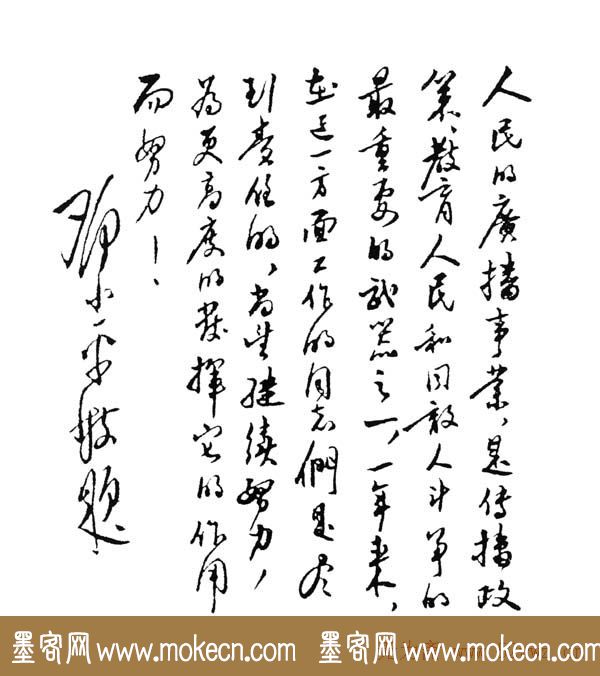 人民的廣播事業，是傳播政
策、教育人民和同敵人斗争的
最重要的武器之一，一年来，
在这一方面工作的同志們是尽
到責任的，尚望继续努力，
为更高度的發揮它的作用
而努力！
邓小平敬题
墨客网 www.mokecn.com 墨客网 www.mokecn.com